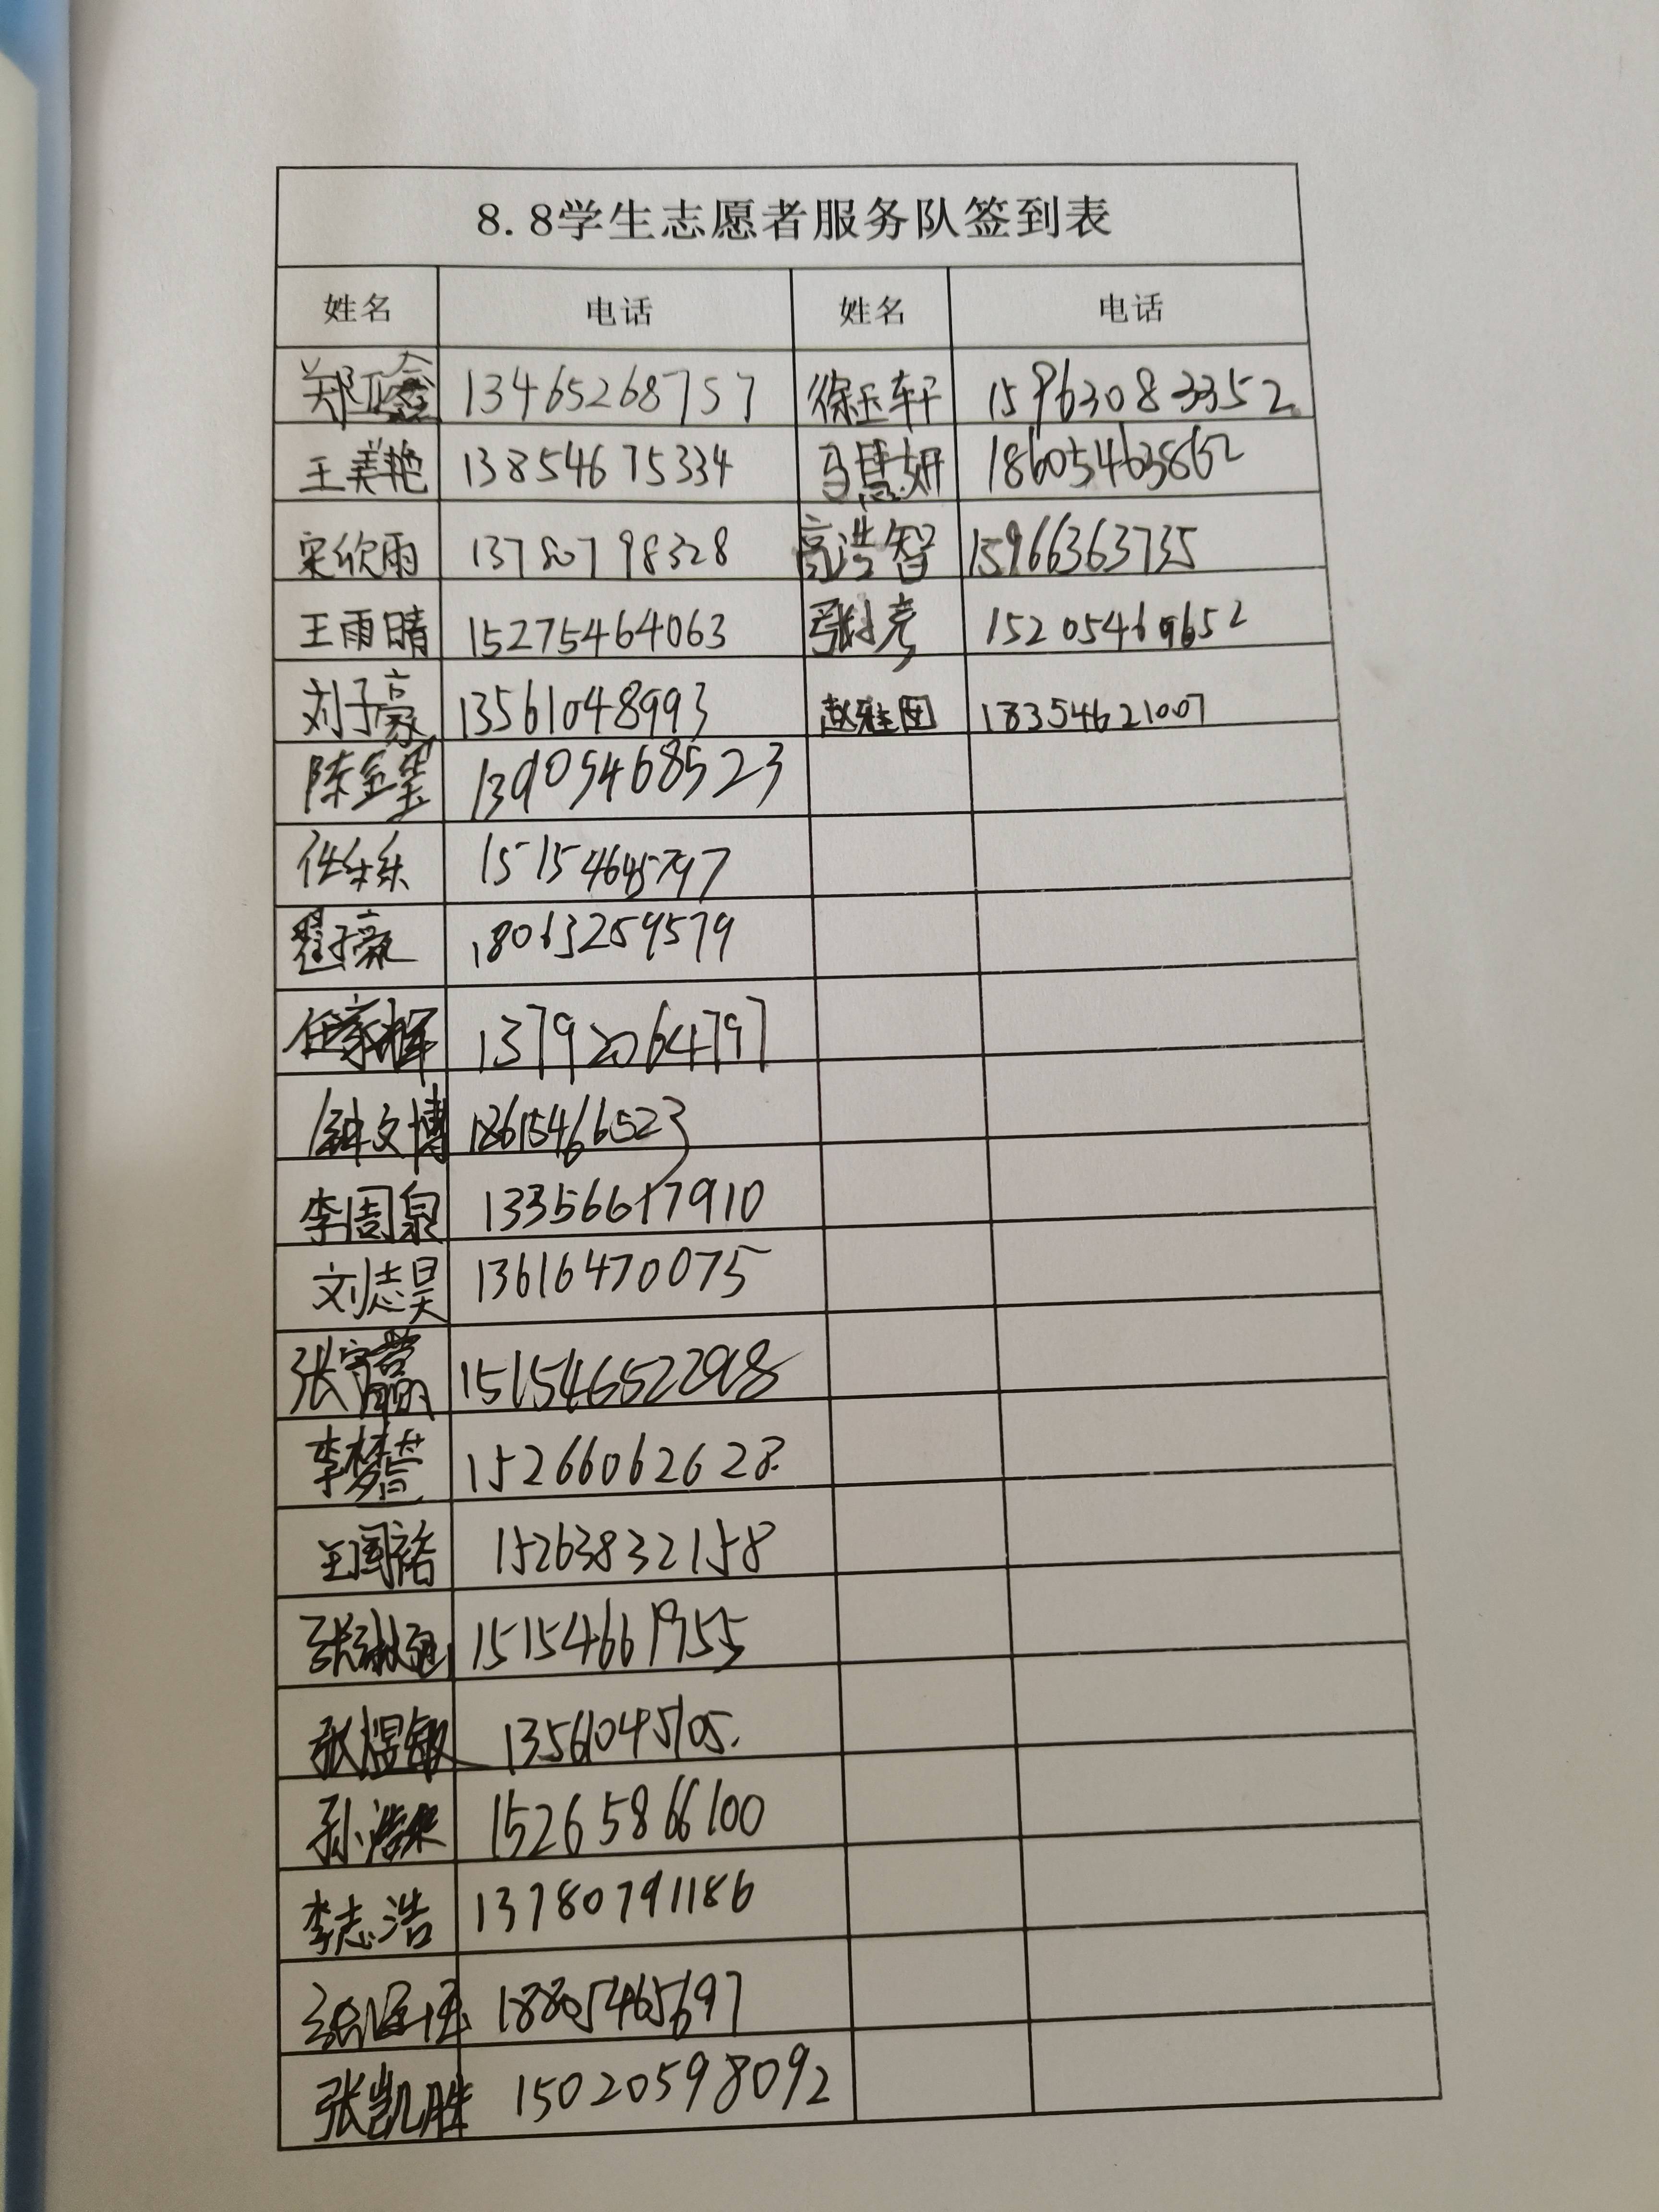 8.8学生志愿者服务队签到表
姓名 电话 姓名 电话
郑 13465268757 徐玉轩 15963083352
王美艳 13854675334 马慧妍 18605463862
宋欣雨 13780798328 高浩智 15966363735
王雨晴 15275464063 张 15205469652
刘子豪 13561048993 赵雅囡 18354621007
陈金玺 13905468523
任乐乐 15154645797
翟子豪 18063259579
任家辉 13792064797
钟文博 18615466523
李周泉 13356617910
刘志昊 13616470075
张 15154652298
李梦 15266062628
王国裕 15263832158
张淑 15154661955
张煜 13561045105
孙浩 15265866100
李志浩 13780791186
18805465697
张凯胜 15020598092